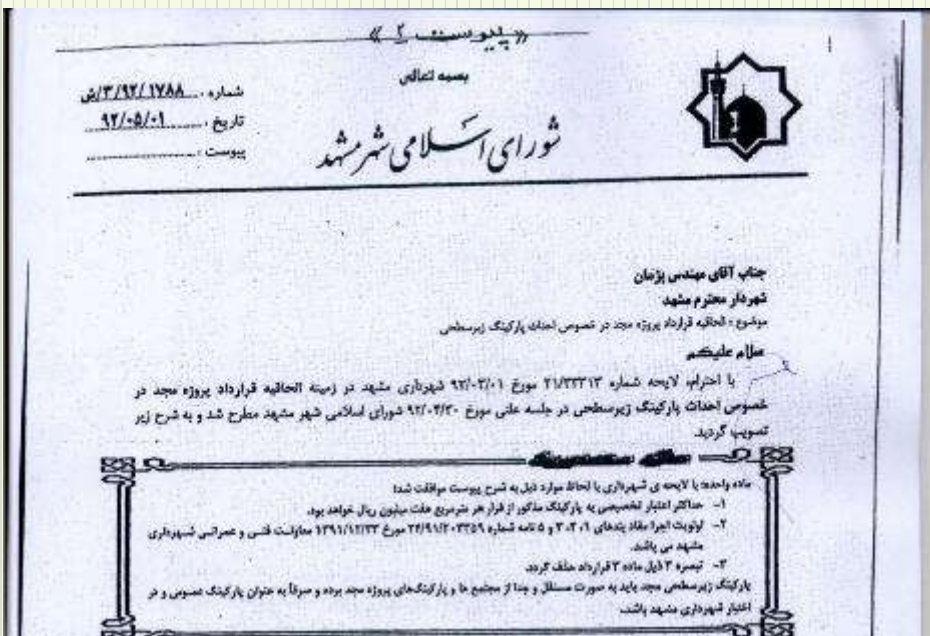 «پیوست ۲»
بسمه تعالی
شماره: ۳/۹۲/۱۷۸۸/ش
تاریخ: ۹۲/۰۵/۰۱
پیوست:
شورای اسلامی شهر مشهد
جناب آقای مهندس پژمان
شهردار محترم مشهد
موضوع: الحاقیه قرارداد پروژه مجد در خصوص احداث پارکینگ زیرسطحی
سلام علیکم
با احترام، لایحه شماره ۲۱/۳۳۳۱۳ مورخ ۹۲/۰۳/۰۱ شهرداری مشهد در زمینه الحاقیه قرارداد پروژه مجد در
خصوص احداث پارکینگ زیرسطحی در جلسه علنی مورخ ۹۲/۰۴/۳۰ شورای اسلامی شهر مشهد مطرح شد و به شرح زیر
تصویب گردید.
ماده واحده: با لایحه ی شهرداری با لحاظ موارد ذیل به شرح پیوست موافقت شد:
۱- حداکثر اعتبار تخصیصی به پارکینگ مذکور از قرار هر مترمربع هفت میلیون ریال خواهد بود.
۲- اولویت اجرا مفاد بندهای ۱، ۲، ۳ و ۵ نامه شماره ۲۴/۹۱/۲۰۳۳۵۹ مورخ ۱۳۹۱/۱۲/۲۳ معاونت فنی و عمرانی شهرداری
مشهد می باشد.
۳- تبصره ۳ ذیل ماده ۳ قرارداد حذف گردد.
پارکینگ زیرسطحی مجد باید به صورت مستقل و جدا از مجتمع ها و پارکینگ‌های پروژه مجد بوده و صرفاً به عنوان پارکینگ عمومی و در
اختیار شهرداری مشهد باشد.